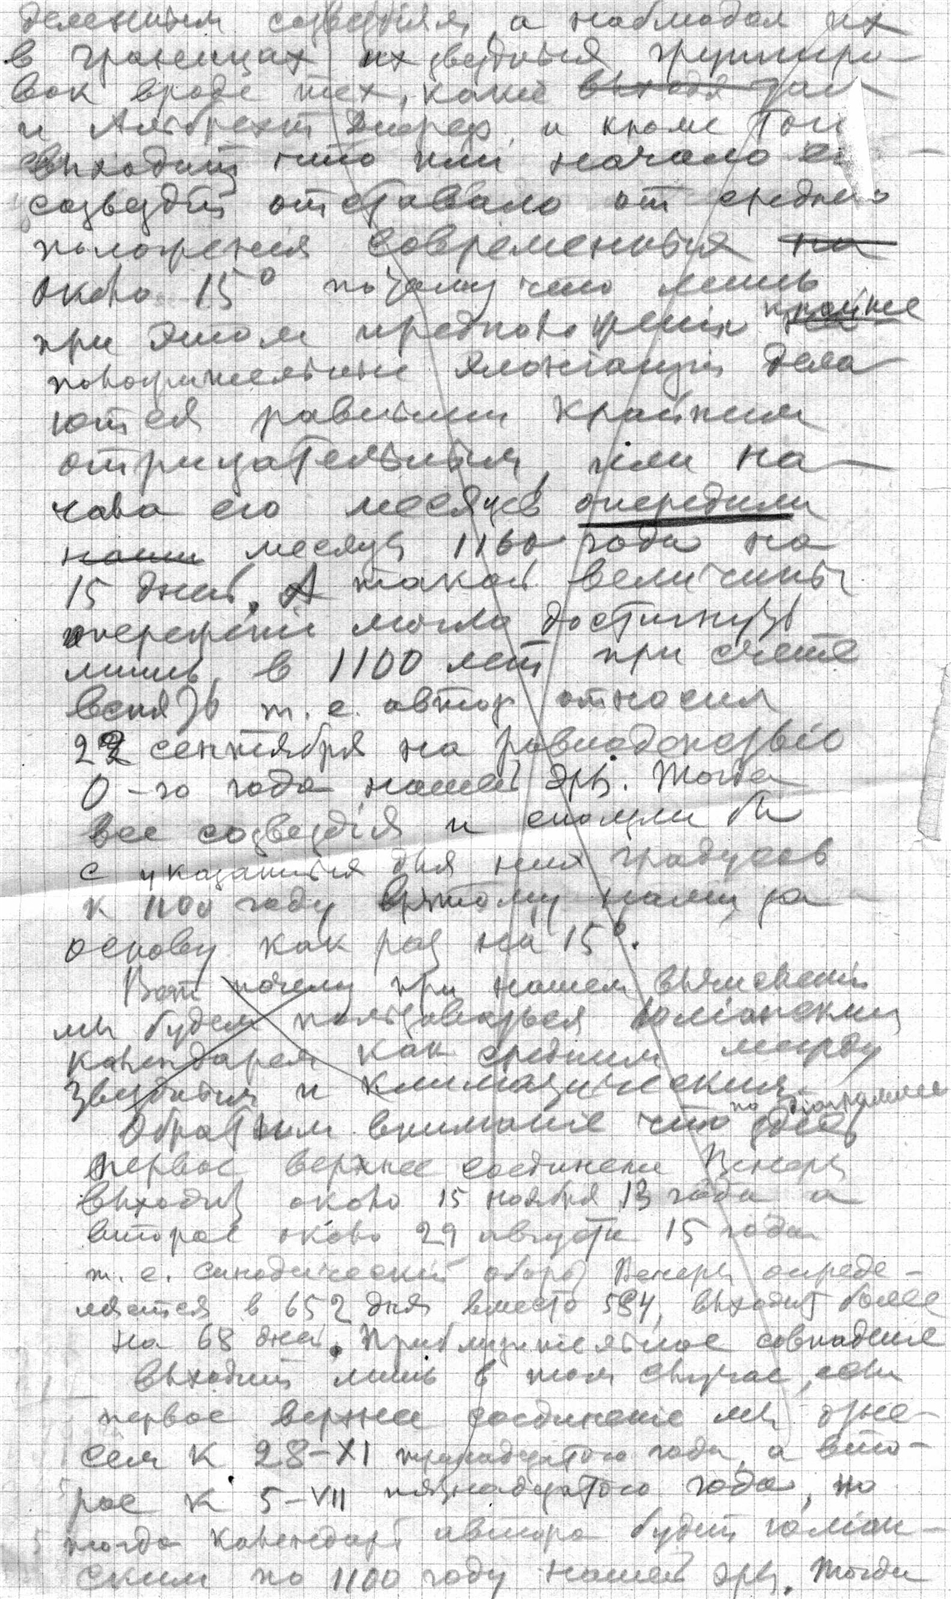 деленным созвездіям, а наблюдал их
в границах их звездных группиро-
вок вроде тех, какие выходя дал
и Альбрехт Дюрер, и кроме того
выходит что или начало его
созвездій отставало от средняго
положенія современных на
около 15° потому что лишь
при этом предположеніи крайніе
положительные элонгаціи дела
ются равными крайним
отрицательным, или на-
чала его месяцев опередили
наши месяцы 1160 года на
15 дней. А такой величины
опереженіе могло достигнуть
лишь в 1100 лет при счете
вспять т. е. автор относил
22 сентября на равноденствіе
0-го года нашей эры. Тогда
все созвездія и сползли бы
с указанных для них градусов
к 1100 году взятому нами за
основу как раз на 15°.
Вот почему при нашем вычислении
мы будем пользоваться юліанским
календарем как средним между
звездным и климатическим
по діаграмме
Обратим вниманіе что здесь
первое верхнее соединение Венеры
выходит около 15 ноября 13 года а
второе около 29 августа 15 года
т. е. синодический оборот Венеры опреде-
ляется в 652 дня вместо 584, выходит более
на 68 дней. Приблизительное совпадение
выходит лишь в том случае, если
первое верхнее соединеніе мы отне-
сем к 28-XI тринадцатого года, а вто-
рое к 5-VII пятнадцатого года, но
тогда календарь автора будет юліан-
ским по 1100 году нашей эры. Тогда